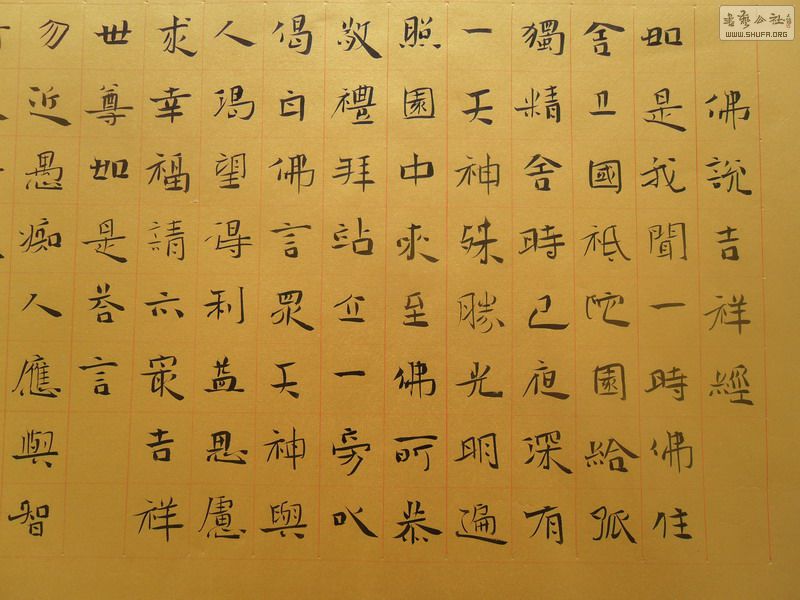 佛說吉祥經
如是我聞一時佛住
舍卫國祗陀園給孤
獨精舍時已夜深有
一天神殊勝光明遍
照園中來至佛所恭
敬禮拜站立一旁以
偈白佛言眾天神與
人渴望得利益思慮
求幸福請示最吉祥
世尊如是答言
勿近愚痴人應與智
書藝公社
WWW.SHUFA.ORG